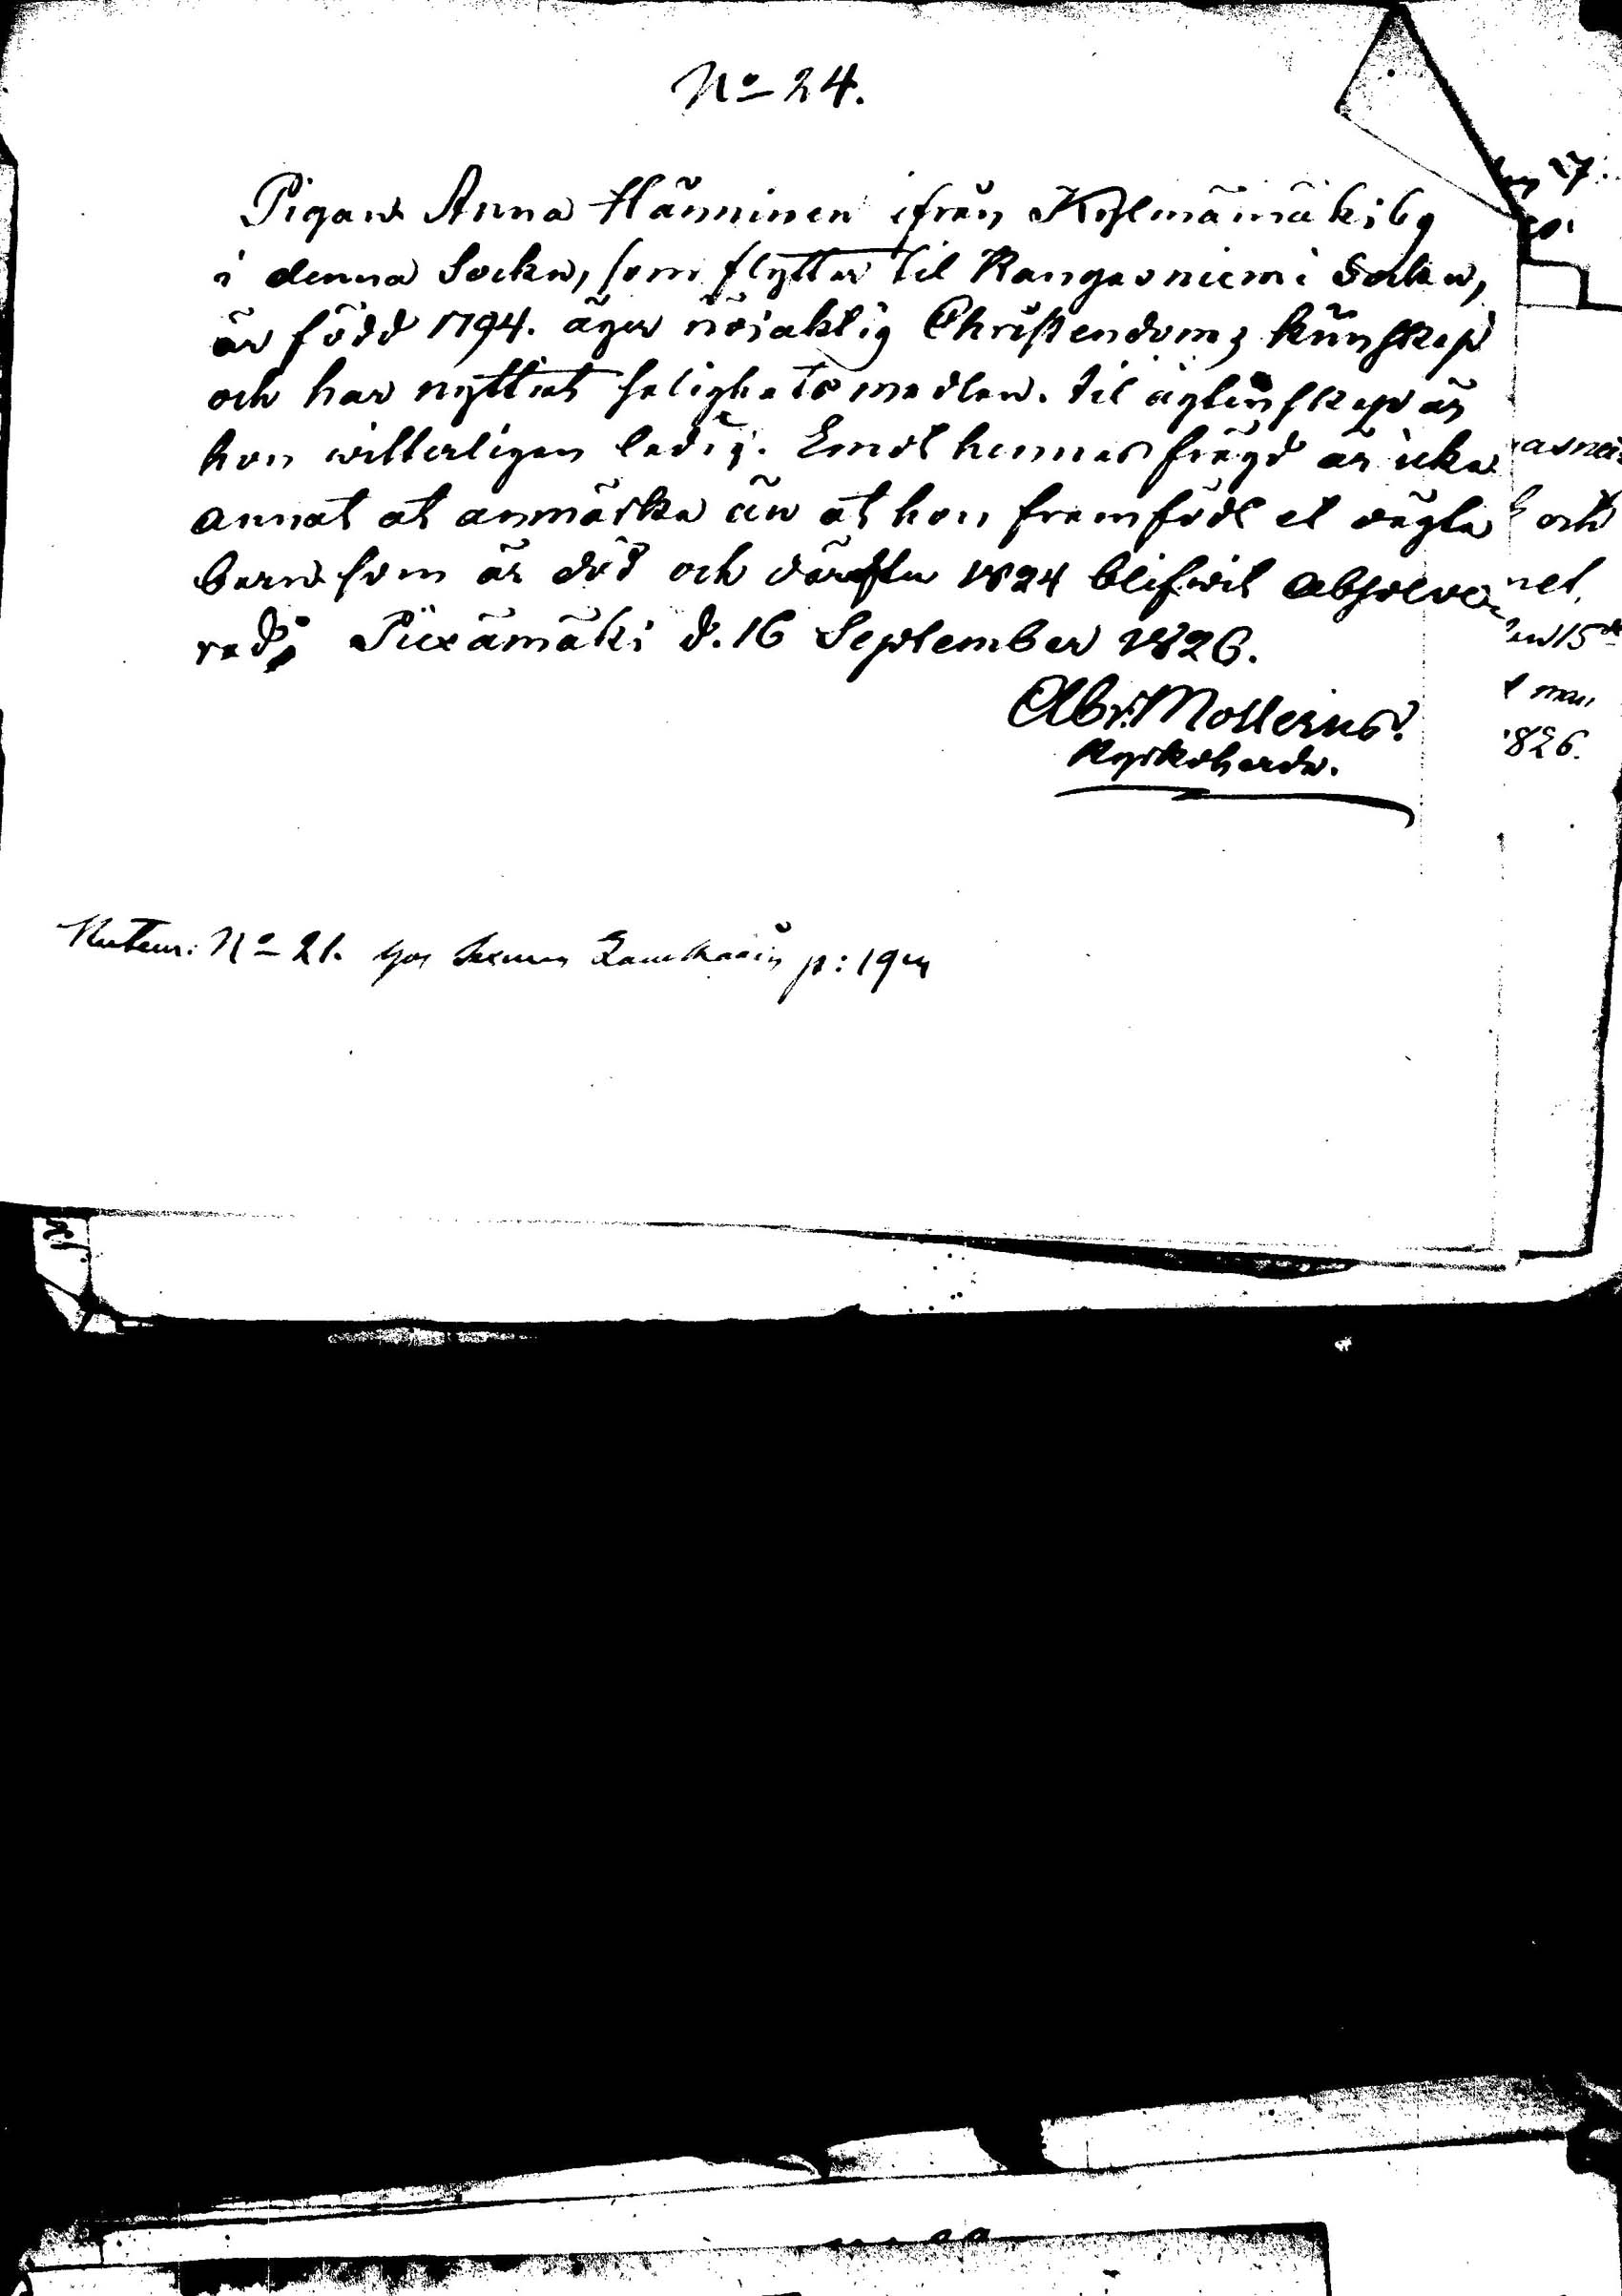 No 24.
Pigan Anna Hänninen ifrån Kylmämäki by
i denna Sockn, som flyttar til Kangasniemi Sockn,
är född 1794. äger nöjaktig Christendoms kunskap
och har nyttiat salighets medlen. til ägtenskap är
hon witterligen ledig. Emot hennes frägd är icke
annat at anmärka än at hon framfödt et oägta
barn som är död och därefter 1824 blifwit absolve-
rad; Piexämäki d. 16 September 1826.
Abr. Mollerus.
Kyrkoherde.
No 21. hos p: 194
och
1826.